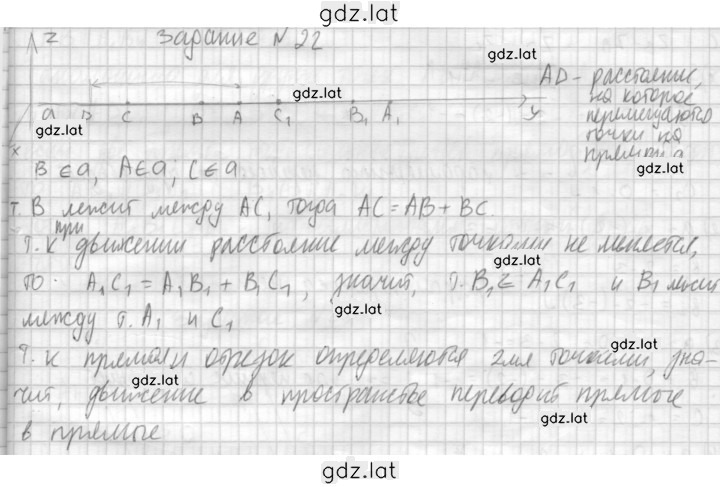 gdz.lat
Задание N 22
z
gdz.lat
AD - расстояние,
на которое
перемещаются
точки на
прямой a
gdz.lat
a D C B A C₁ B₁ A₁ y
gdz.lat
gdz.lat
x
B ∈ a, A ∈ a; C ∈ a
т. B лежит между AC, тогда AC = AB + BC
т.к при движении расстояние между точками не меняется,
gdz.lat
то A₁C₁ = A₁B₁ + B₁C₁, значит, т. B₁ ∈ A₁C₁ и B₁ лежит
gdz.lat
между т. A₁ и C₁
gdz.lat
т.к прямая и отрезок определяются 2мя точками, зна-
gdz.lat
чит, движение в пространстве переводит прямые
gdz.lat
в прямые
gdz.lat